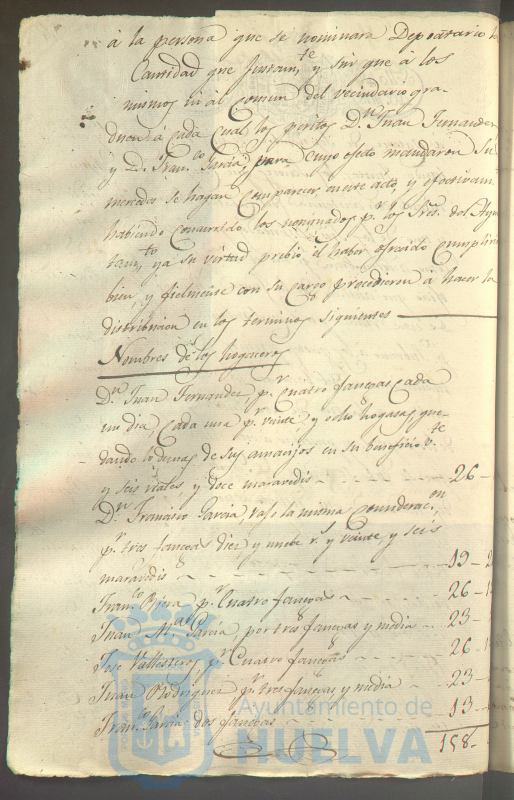 à la persona que se nominara Depositario la
Cantidad que Juntamte y sin que à los
mismos ni al Comun del vecindario gra-
duen à cada cual los peritos Dn Juan Fernandez
y D. Franco Garcia, para cuyo efecto mandaron Sus
mercedes se hagan Comparecer en este acto, y efectivam
habiendo Concurrido los nonguados pr los Sres del Ayun
tamto, y a su virtud prebio el haber ofrecido Cumplir
bien y fielmente con su cargo procedieron à hacer la
distribucion en los terminos siguientes
Nombres de los hogaceros
Dn Juan Fernandez, pr Cuatro fanegas cada
un dia, Cada una pr veinte, y ocho hogasas que-
dando las demas de sus amacijos en su beneficio vte
y seis reales y doce maravedis 26-
Dn Francisco Garcia, vaso la misma Consideracion
pr tres fanegas diez y nuebe rs y veinte y seis
maravedis 19-2
Franco Riera pr Cuatro fanegas 26-1
Juan Garcia, por tres fanegas y media 23-
Jose Vallesteros, pr Cuatro fanegas 26-1
Juan Rodriguez pr tres fanegas y media 23-
Franco Garcia dos fanegas 13-
158-
Ayuntamiento de
HUELVA